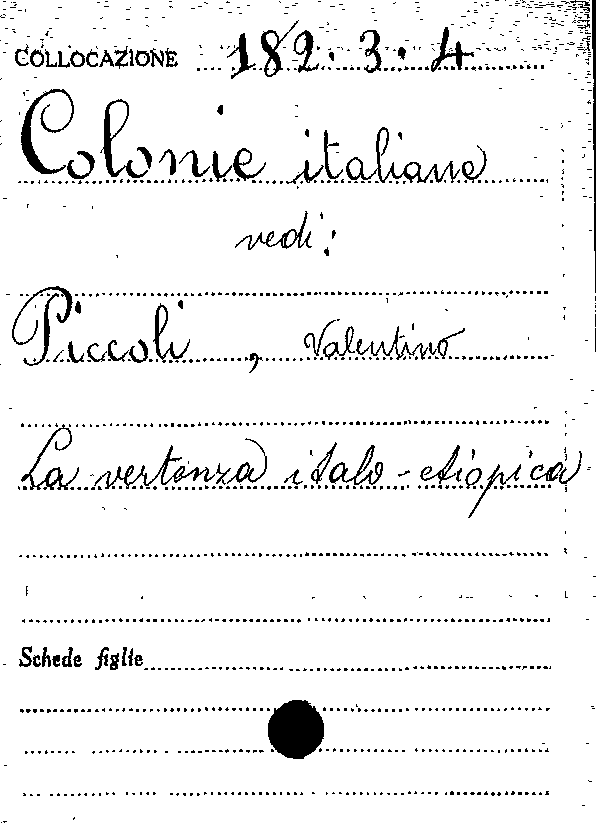 COLLOCAZIONE 182.3.4
Colonie italiane
vedi:
Piccoli, Valentino
La vertenza italo-etiopica
Schede figlie